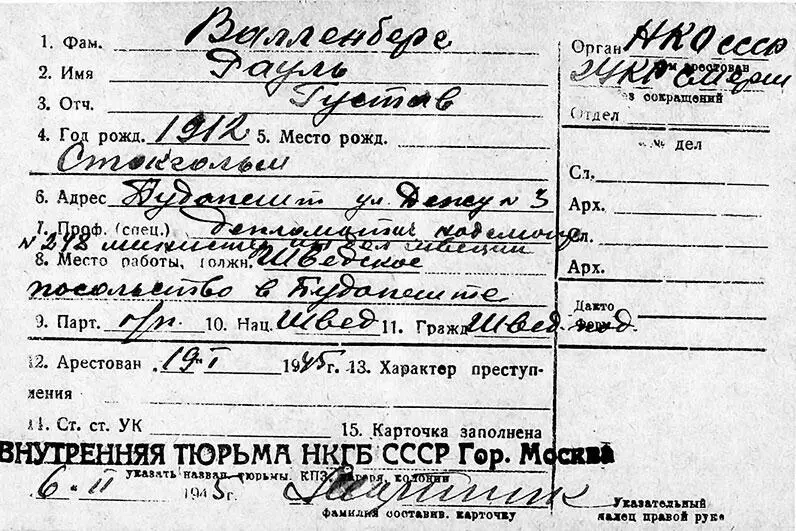 1. Фам. Валленберг
2. Имя Рауль
3. Отч. Густав
4. Год рожд. 1912 5. Место рожд.
Стокгольм
6. Адрес Будапешт ул. Дежу № 3
7. Проф. (спец.) дипломатич
№ 248 министра ин дел Швеции
8. Место работы, должн. Шведское
посольство в Будапеште
9. Парт. б/п. 10. Нац. Швед 11. Гражд Швед. под.
12. Арестован 19 I 1945 г. 13. Характер преступ-
ления
14. Ст. ст. УК 15. Карточка заполнена
ВНУТРЕННЯЯ ТЮРЬМА НКГБ СССР Гор. Москва
указать назван. тюрьмы. КПЗ, лагеря, колонии
6. II 1945 г.
фамилия составив. карточку
Орган НКО СССР
кем арестован
УКР Смерш
без сокращений
Отдел
№№ дел
Сл.
Арх.
Сл.
Арх.
Дакто
форм.
Указательный
палец правой руки